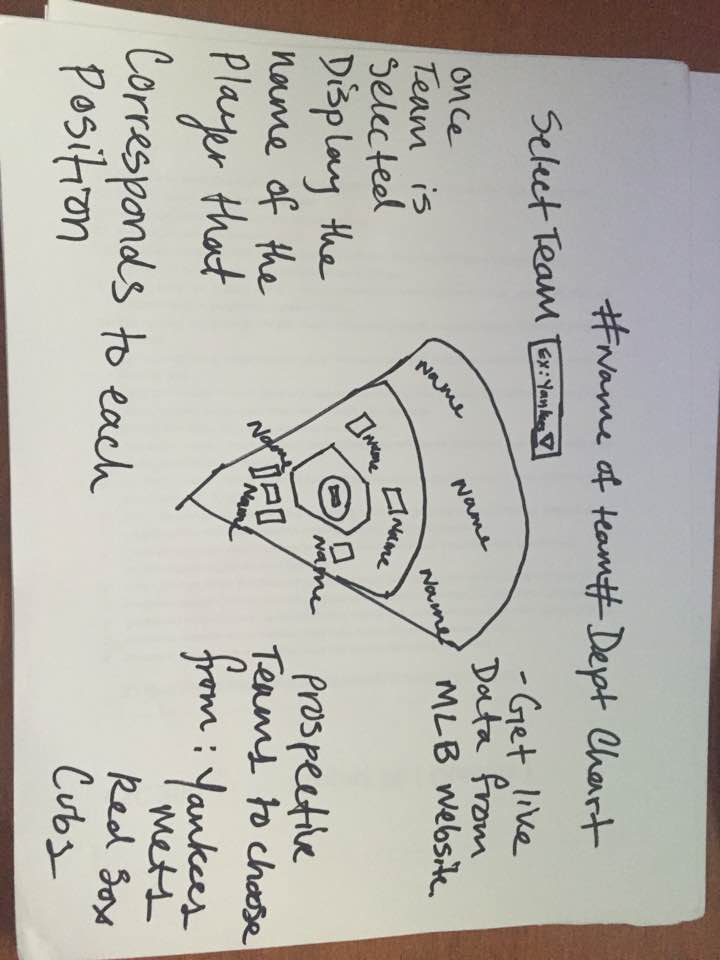 #Name of team# Dept Chart
Select Team Ex: Yankees
once
Team is
Selected
Display the
name of the
player that
Corresponds to each
position
Name
Name
Name
Name
Name
Name
Name
Name
- Get live
Data from
MLB website.
prospective
Teams to choose
from: Yankees
Mets
Red Sox
Cubs